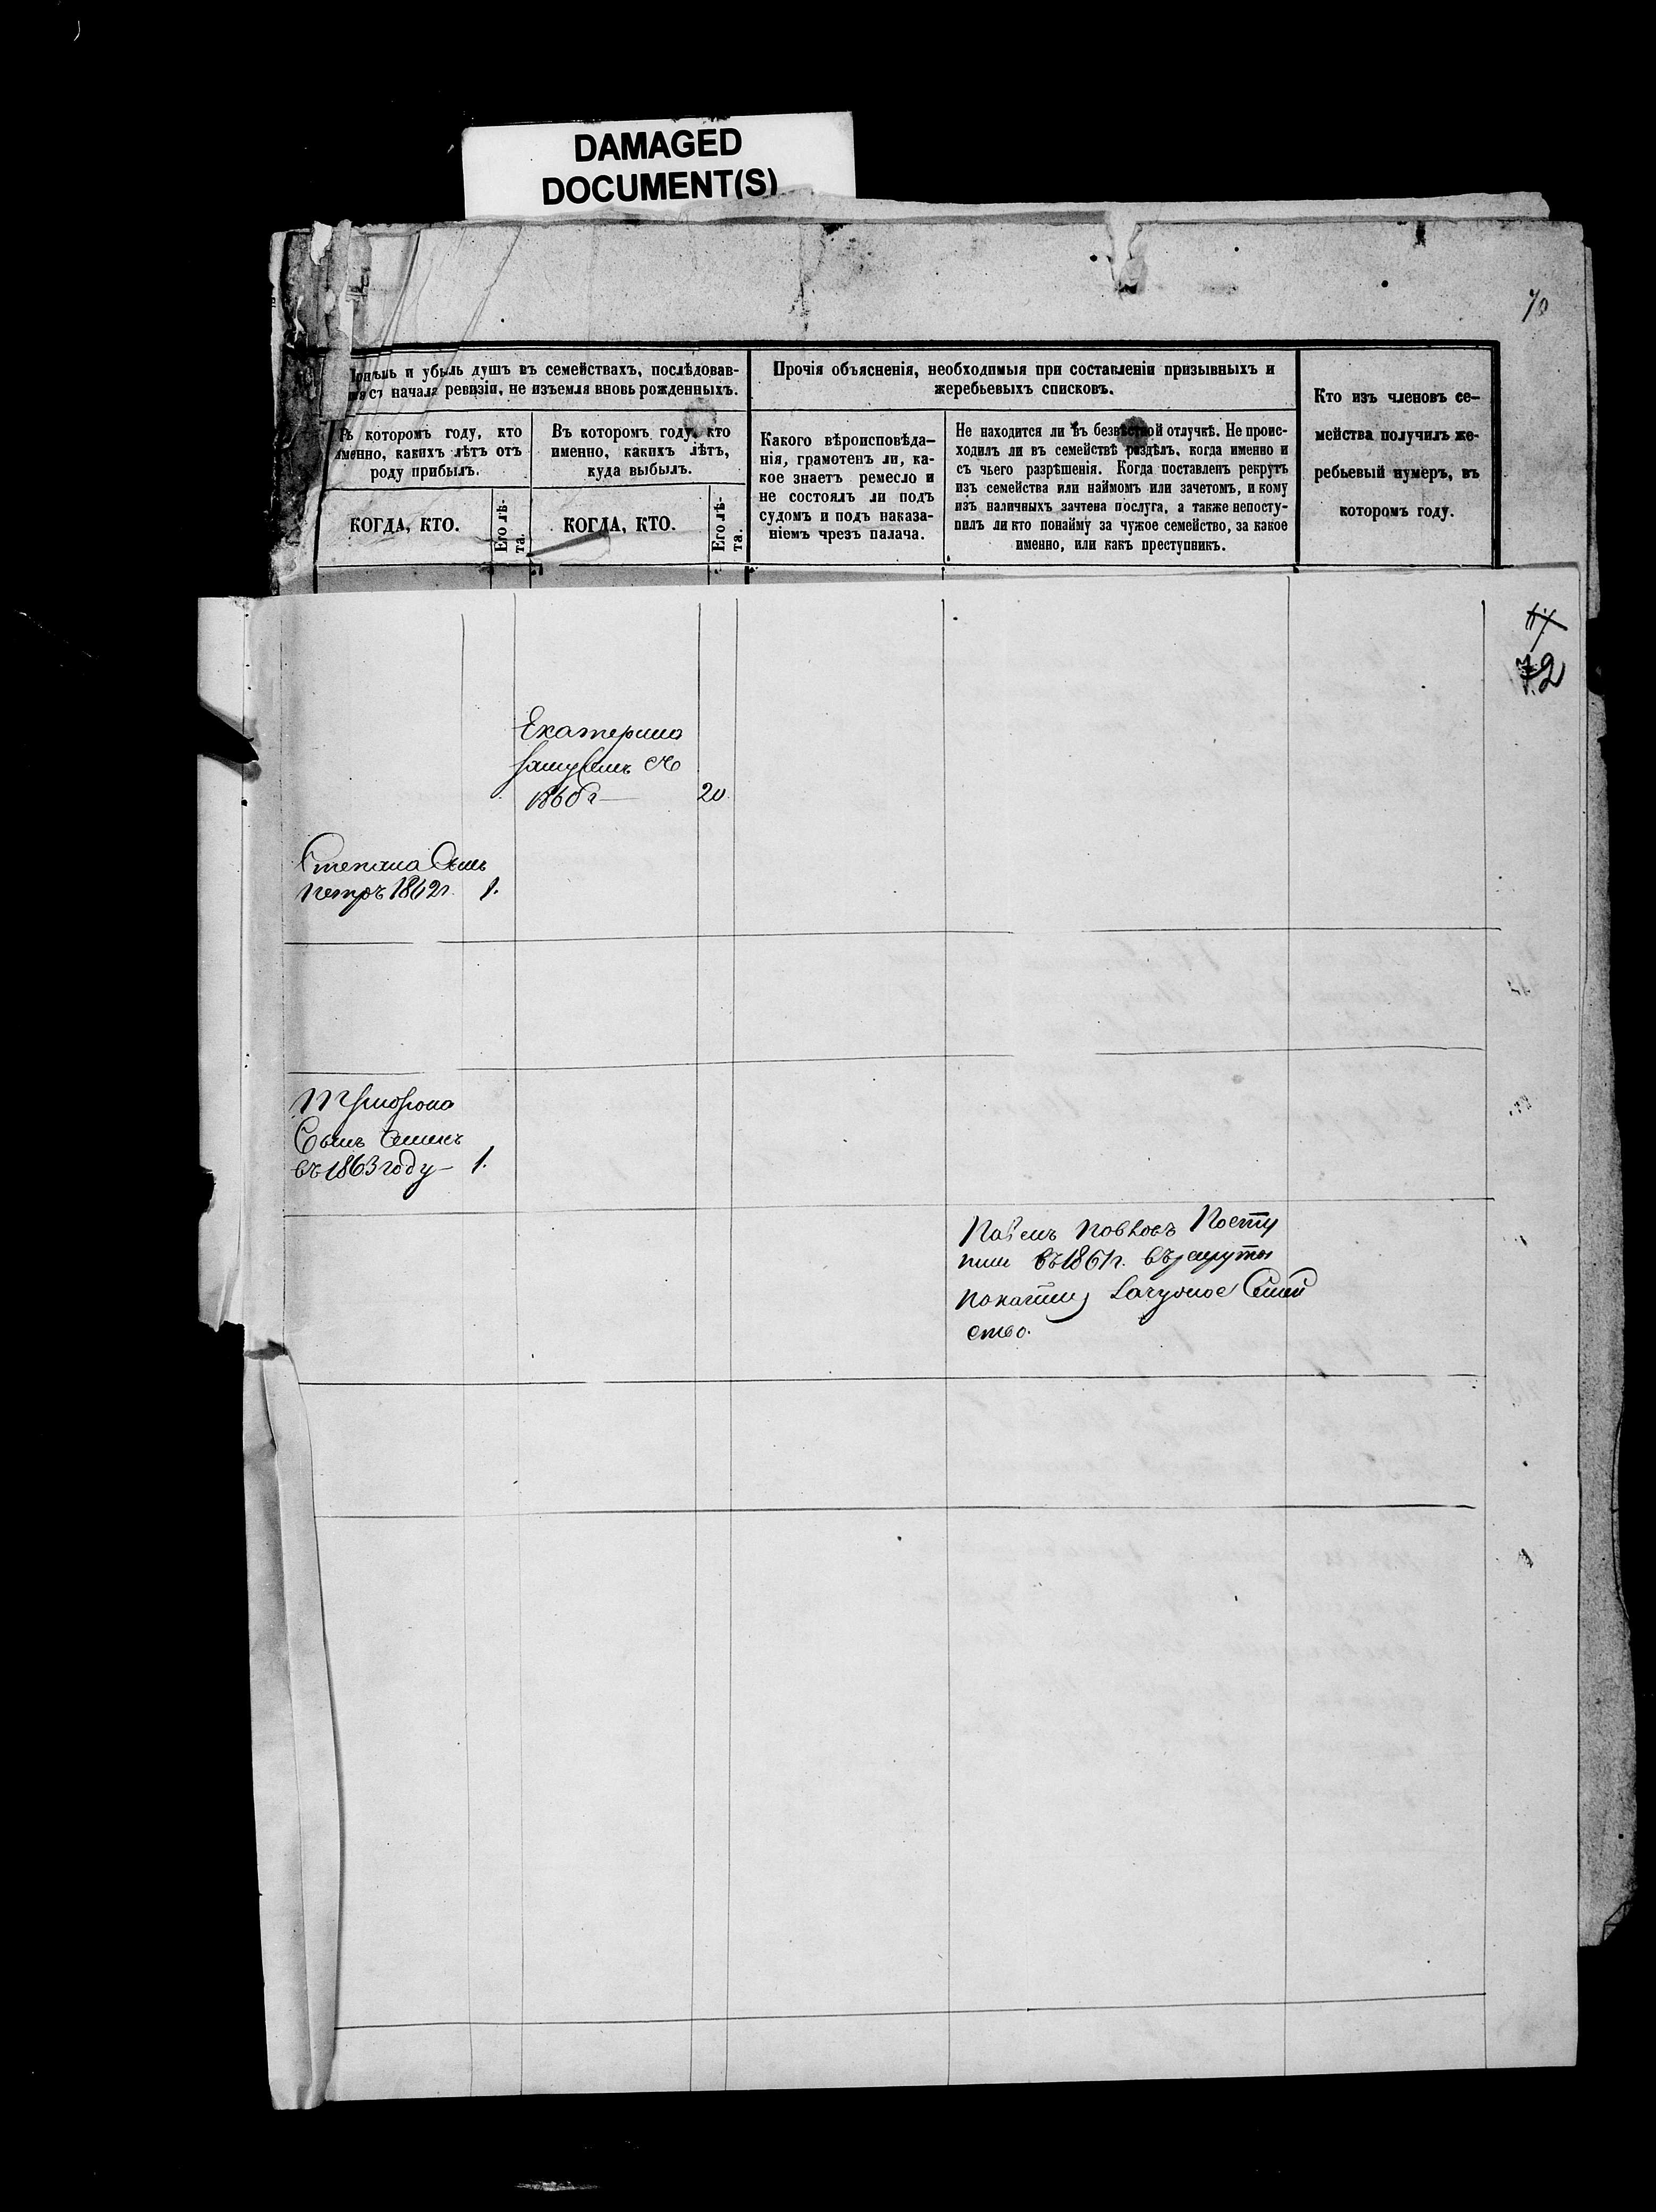 DAMAGED
DOCUMENT(S)
70
и убыль душъ въ семействахъ, послѣдовав-
съ начала ревизіи, не изъемля вновь рожденныхъ.
Въ которомъ году, кто
именно, какихъ лѣтъ отъ
роду прибылъ.
Въ которомъ году, кто
именно, какихъ лѣтъ,
куда выбылъ.
КОГДА, КТО.
Его лѣ-
та.
КОГДА, КТО.
Его лѣ-
та.
Прочія объясненія, необходимыя при составленіи призывныхъ и
жеребьевыхъ списковъ.
Какого вѣроисповѣда-
нія, грамотенъ ли, ка-
кое знаетъ ремесло и
не состоялъ ли подъ
судомъ и подъ наказа-
ніемъ чрезъ палача.
Не находится ли въ безвѣстной отлучкѣ. Не проис-
ходилъ ли въ семействѣ раздѣлъ, когда именно и
съ чьего разрѣшенія. Когда поставленъ рекрутъ
изъ семейства или наймомъ или зачетомъ, и кому
изъ наличныхъ зачтена послуга, а также непосту-
пилъ ли кто понайму за чужое семейство, за какое
именно, или какъ преступникъ.
Кто изъ членовъ се-
мейства получилъ же-
ребьевый нумеръ, въ
которомъ году.
72
Екатерина
1860г 20
Степана Сынъ
Петръ 1862г. 1.
Сынъ
въ 1863 году 1.
Посту
въ 1861г.
Семей
ство.